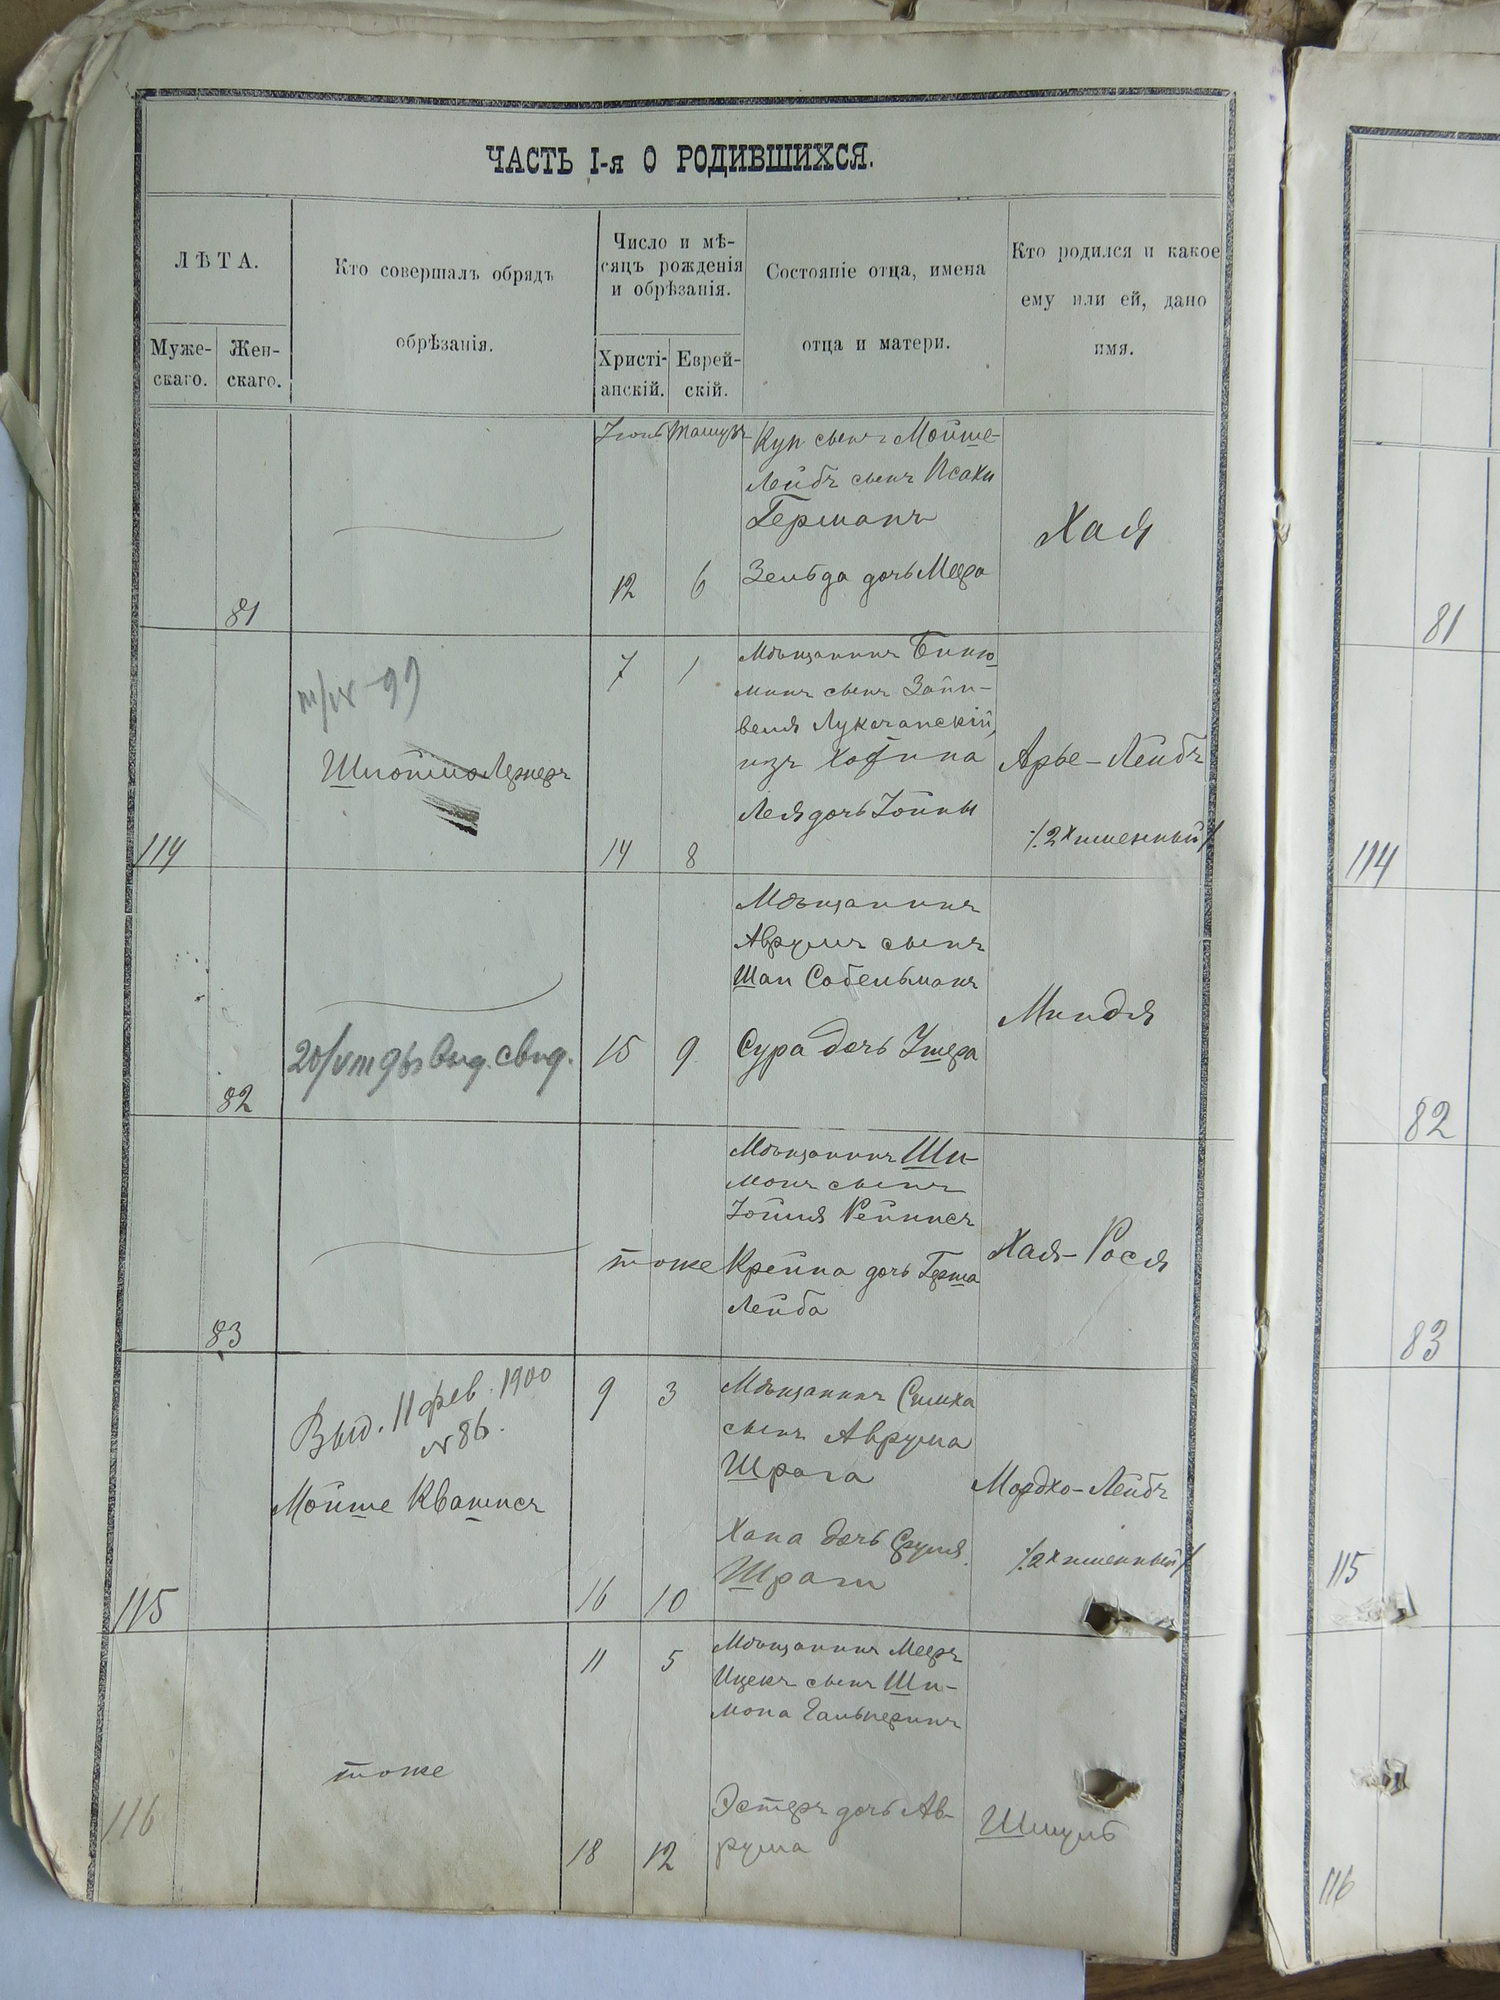 ЧАСТЬ I-я О РОДИВШИХСЯ.
ЛѢТА.
Муже-
скаго.
Жен-
скаго.
Кто совершалъ обрядъ
обрѣзанія.
Число и мѣ-
сяцъ рожденія
и обрѣзанія.
Христі-
анскій.
Еврей-
скій.
Состояніе отца, имена
отца и матери.
Кто родился и какое
ему или ей, дано
имя.
81
Іюнь
Тамузъ
12
6
Куп сынъ Мойше-
Лейбъ сынъ Исаки
Германъ
Зельда дочь Меера
Хая
114
99
Шлойма Лернеръ
7
1
14
8
Мѣщанинъ Биню
минъ сынъ Зай-
веля Лукачанскій,
изъ Хотина
Лея дочь Іойны
Арье-Лейбъ
/.2хименный/
82
20/VIII 96 выд. свид.
15
9
Мѣщанинъ
Аврумъ сынъ
Шаи Сабельманъ
Сура дочь Ушера
Миндля
83
тоже
Мѣщанинъ Ши-
монъ сынъ
Іойля Рейнисъ
Крейна дочь Герша
Лейба
Хая-Рося
115
Выд. 11 фев. 1900
№ 86.
Мойше Квашнсъ
9
3
16
10
Мѣщанинъ Симха
сынъ Аврума
Шрага
Хана дочь Сруля
Шраги
Мордко-Лейбъ
/.2хименный/
116
тоже
11
5
18
12
Мѣщанинъ Мееръ
Ицекъ сынъ Ши-
мона Гальперинъ
Эстеръ дочь Ав-
рума
Шмуль
81
114
82
83
115
116